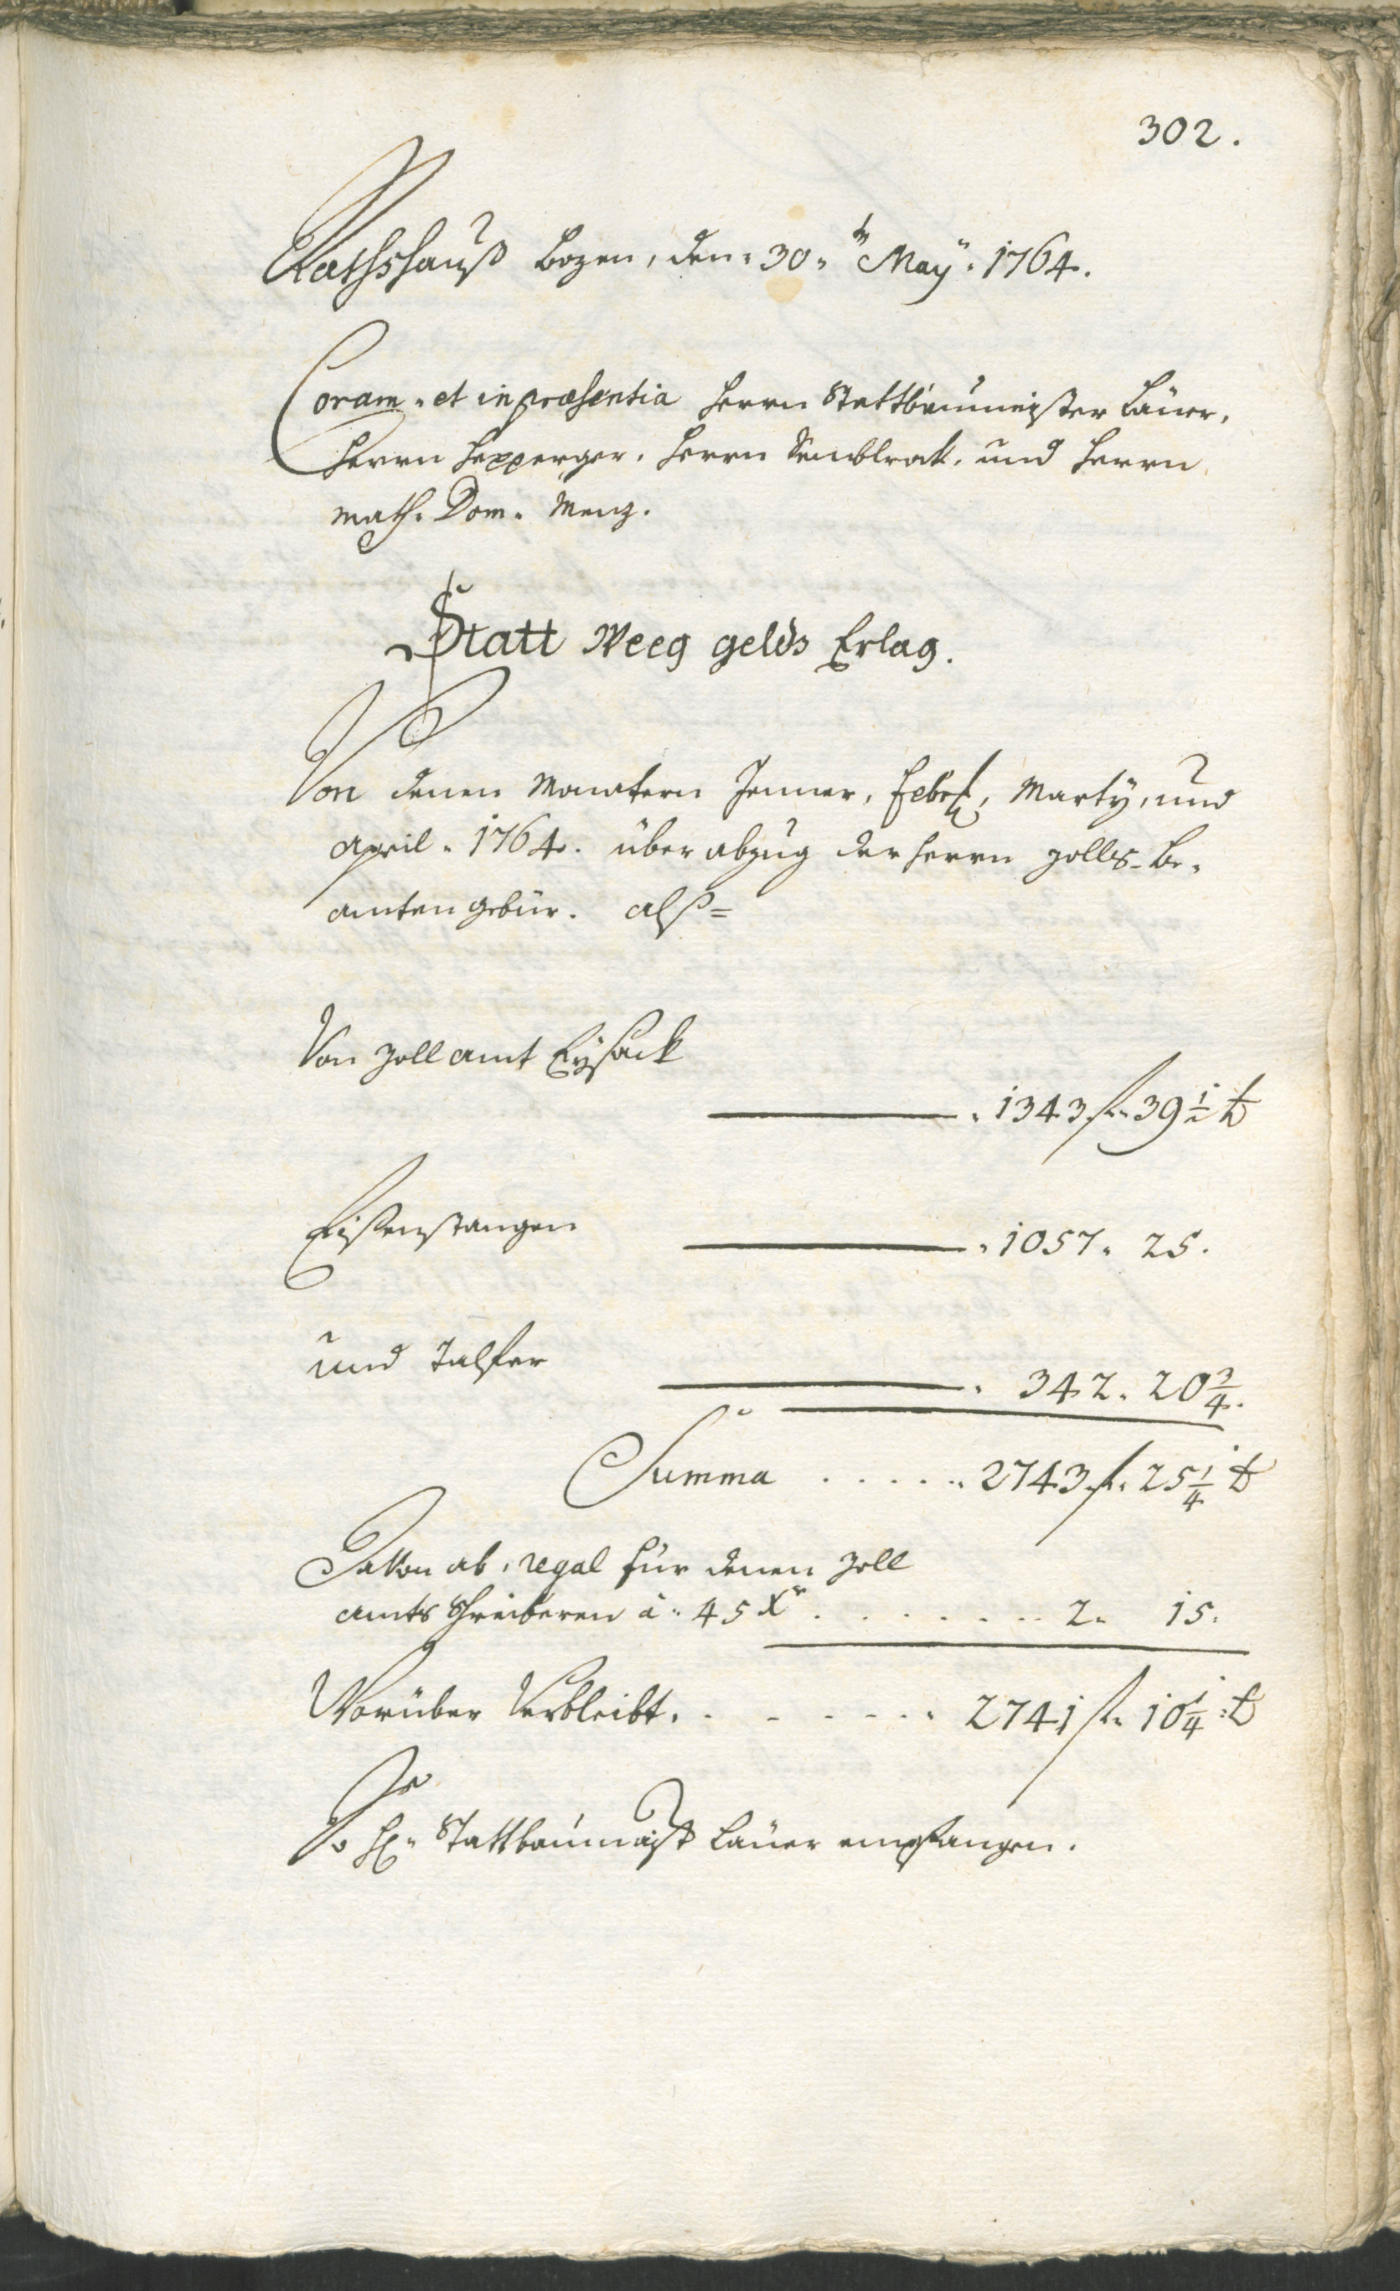 302.
Rathshauß Bozen, den 30.tn May 1764.
Coram et in præsentia Herrn Stattbaumeister Lauer,
Herrn Hepperger, Herrn und Herrn
Math. Dom. Menz.
Statt Weeg gelds Erlag.
Von denen Monatern Jenner, Febr, Marty, und
April 1764. über abzug der Herrn Zolls-Be-
amten gebür. alß=
Von Zollamt Eysack
1343 f. 39 1/2 xr
Eisenstangen
1057. 25.
und Talfer
342. 20 3/4.
Summa ..... 2743 f. 25 1/4 xr
Davon ab, regal für denen Zoll
amts Schreiberen à 45 xr ........ 2. 15.
Worüber Verbleibt. ....... 2741 f. 10 1/4 xr
So H. Stattbaumaist Lauer empfangen.